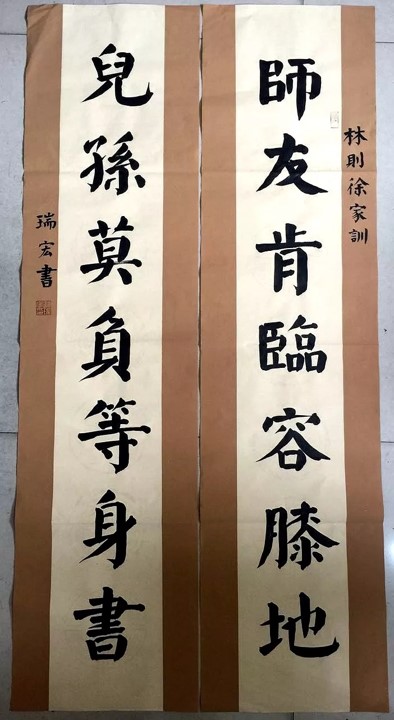 林則徐家訓
師友肯臨容膝地
兒孫莫負等身書
瑞宏書